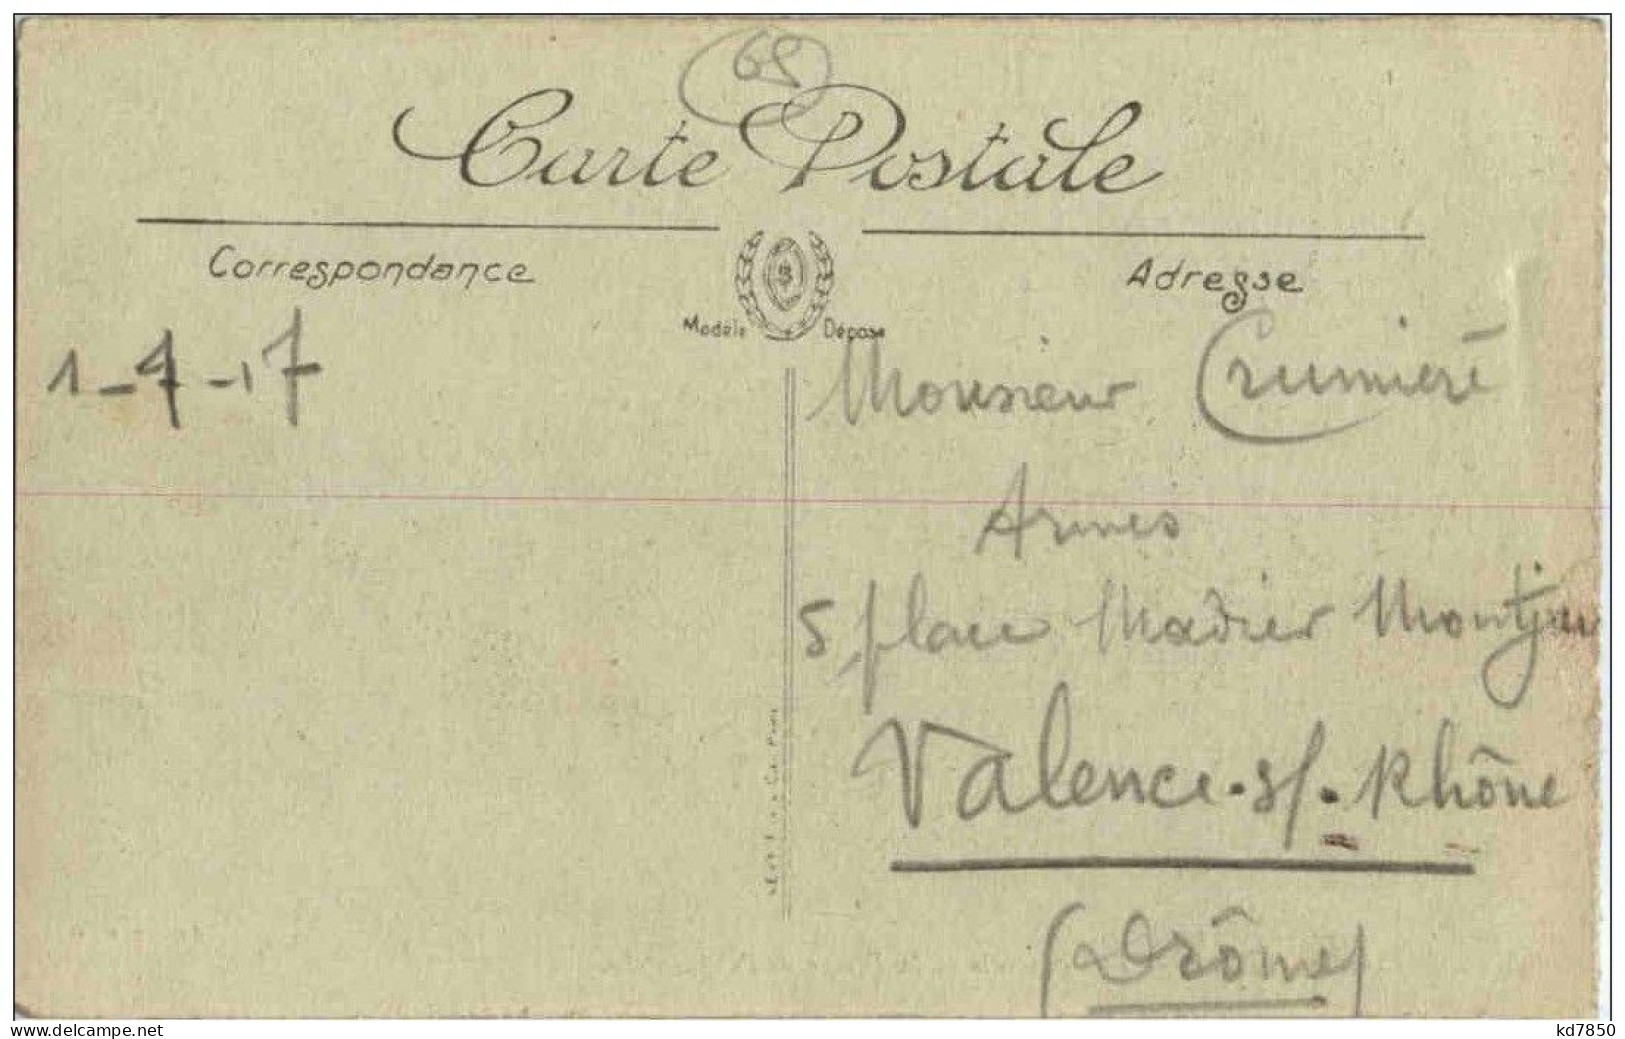 65
Carte Postale
Correspondance
Adresse
Modèle Déposé
1-4-17
Monsieur Crumière
Armes
5, place Madier Montjau
Valence-s/-Rhône
(Drôme)
www.delcampe.net
kd7850